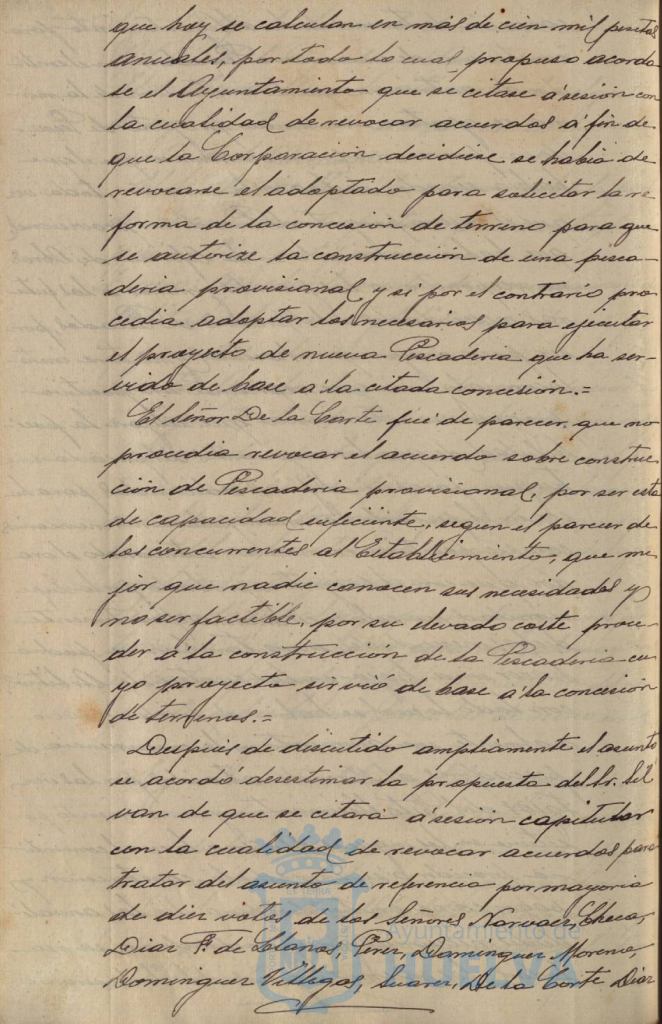 que hoy se calculan en más de cien mil pesetas
anuales, por todo lo cual propuso acorda-
se el Ayuntamiento que se citase á sesión con
la cualidad de revocar acuerdos á fin de
que la Corporación decidiese se habia de
revocarse el adoptado para solicitar la re
forma de la concesión de terreno para que
se autorize la construcción de una pesca-
deria provisional y si por el contrario pro
cedia adoptar los necesarios para ejecutar
el proyecto de nueva Pescaderia que ha ser-
vido de base á la citada concesión.=
El Señor De la Corte fué de parecer que no
procedia revocar el acuerdo sobre construc
ción de Pescaderia provisional, por ser esta
de capacidad suficiente, segun el parecer de
los concurrentes al Establecimiento, que me
jor que nadie conocen sus necesidades y
no ser factible, por su elevado coste proce-
der á la construcción de la Pescaderia cu
yo proyecto sirvió de base á la concesión
de terrenos.=
Después de discutido ampliamente el asunto
se acordó desestimar la propuesta del Sr. Gil
van de que se citara á sesión capitular
con la cualidad de revocar acuerdos para
tratar del asunto de referencia por mayoria
de diez votos de los Señores Narvaez, Checa,
Diaz F. de Llanos, Perez, Dominguez Moreno,
Dominguez Villegas, Suarez, De la Corte Diaz
Ayuntamiento de
HUELVA